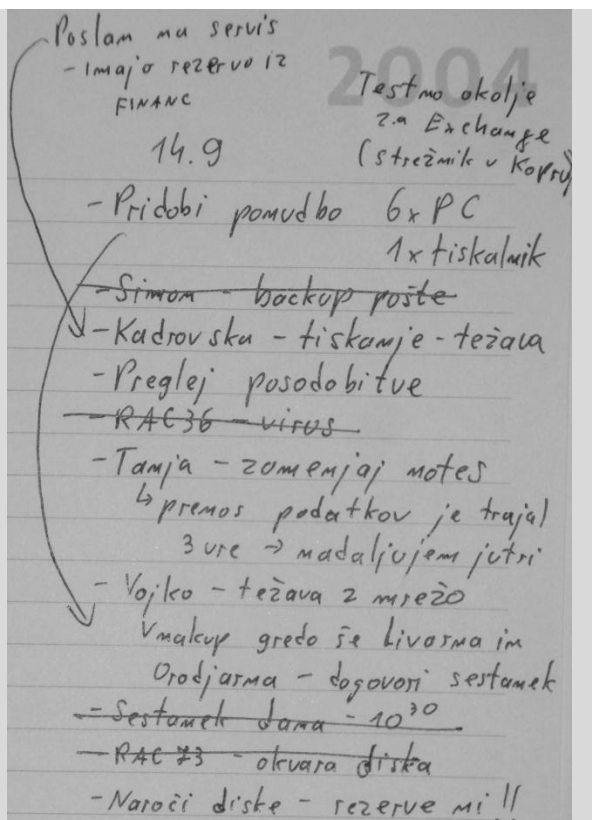 2004
Poslan na servis
- Imajo rezervo iz
FINANC
Testno okolje
za Exchange
(strežnik v Kopru)
14.9
- Pridobi ponudbo 6x PC
1x tiskalnik
- Simon - backup pošte
- Kadrovska - tiskanje - težava
- Preglej posodobitve
- RAC36 - virus
- Tanja - zamenjaj notes
↳ prenos podatkov je trajal
3 ure → nadaljujem jutri
- Vojko - težava z mrežo
V nakup gredo še Livarna in
Orodjarna - dogovori sestanek
- Sestanek dana - 10³⁰
- RAC 73 - okvara diska
- Naroči diske - rezerve ni!!